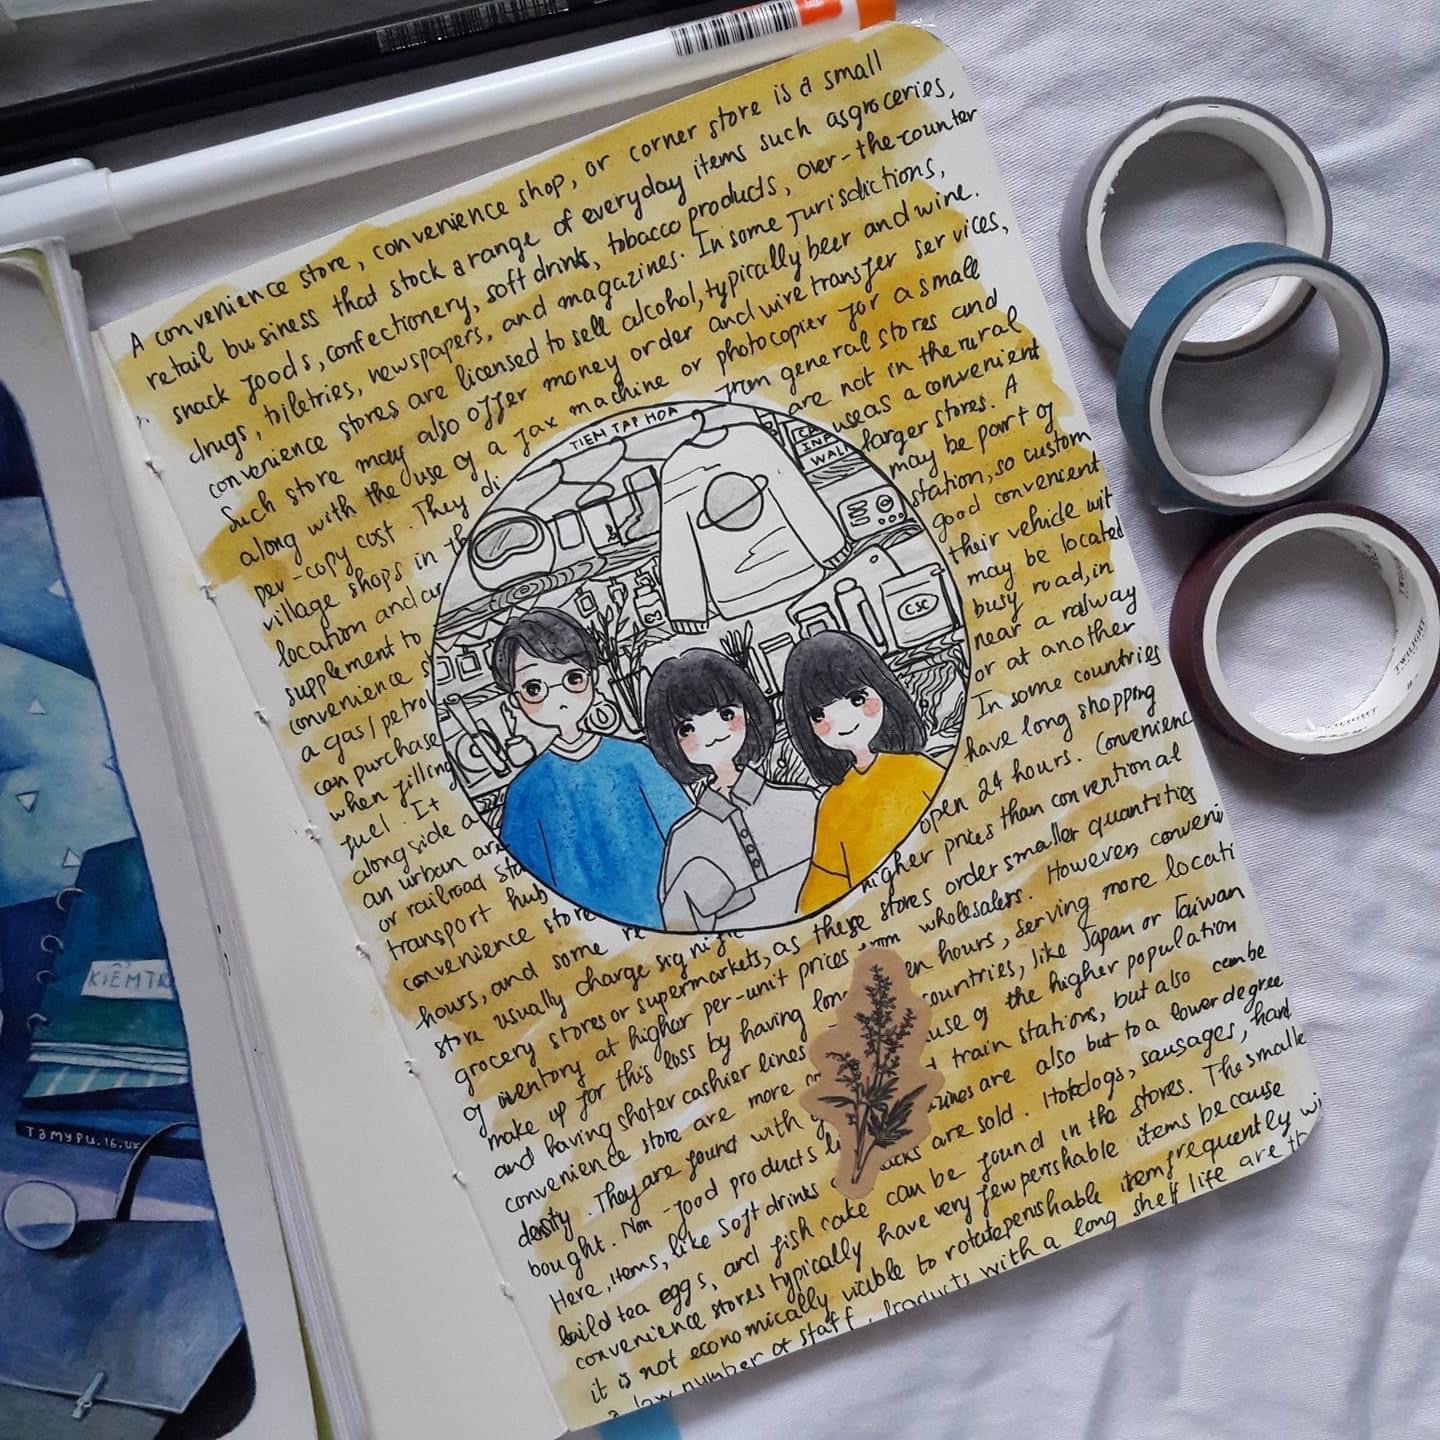 A convenience store, convenience shop, or corner store is a small
retail business that stock a range of everyday items such asgroceries,
snack foods, confectionery, soft drinks, tobacco products, over-the-counter
drugs, toiletries, newspapers, and magazines. In some jurisdictions,
convenience stores are licensed to sell alcohol, typically beer and wine.
Such store may also offer money order and wire transfer services,
along with the use of a fax machine or photocopier for a small
per-copy cost. They di from general stores and
village shops in th are not in the rural
location and ar useas a convenient
supplement to larger stores. A
convenience s may be part of
a gas/petrol station, so custom
can purchase good convenient
when filling their vehicle wit
fuel. It may be located
alongside a busy road, in
an urban are near a railway
or railroad sta or at another
transport hub In some countries
convenience store have long shopping
hours, and some re open 24 hours. Convenienc
store usually charge signific higher prices than conventional
grocery stores or supermarkets, as these stores order smaller quantities
of inventory at higher per-unit prices from wholesalers. However, conveni
make up for this loss by having long en hours, serving more locati
and having shoter cashier lines countries, like Japan or Taiwan
convenience store are more use of the higher population
desity. They are found with d train stations, but also can be
bought. Non-food products li zines are also but to a lower degree
Here, items, like soft drinks acks are sold. Hotdogs, sausages, hard
boild tea eggs, and fish cake can be found in the stores. The smalle
convenience stores typically have very few perishable items because
it is not economically viable to rotate perishable item frequently wi
a low number of staff. Products with a long shelf life are th
TIEM TAP HOA
INFO
WALK
CSC
KIỂMTR
TAMYPU.16.UK
TWILIGHT
TWILIGHT